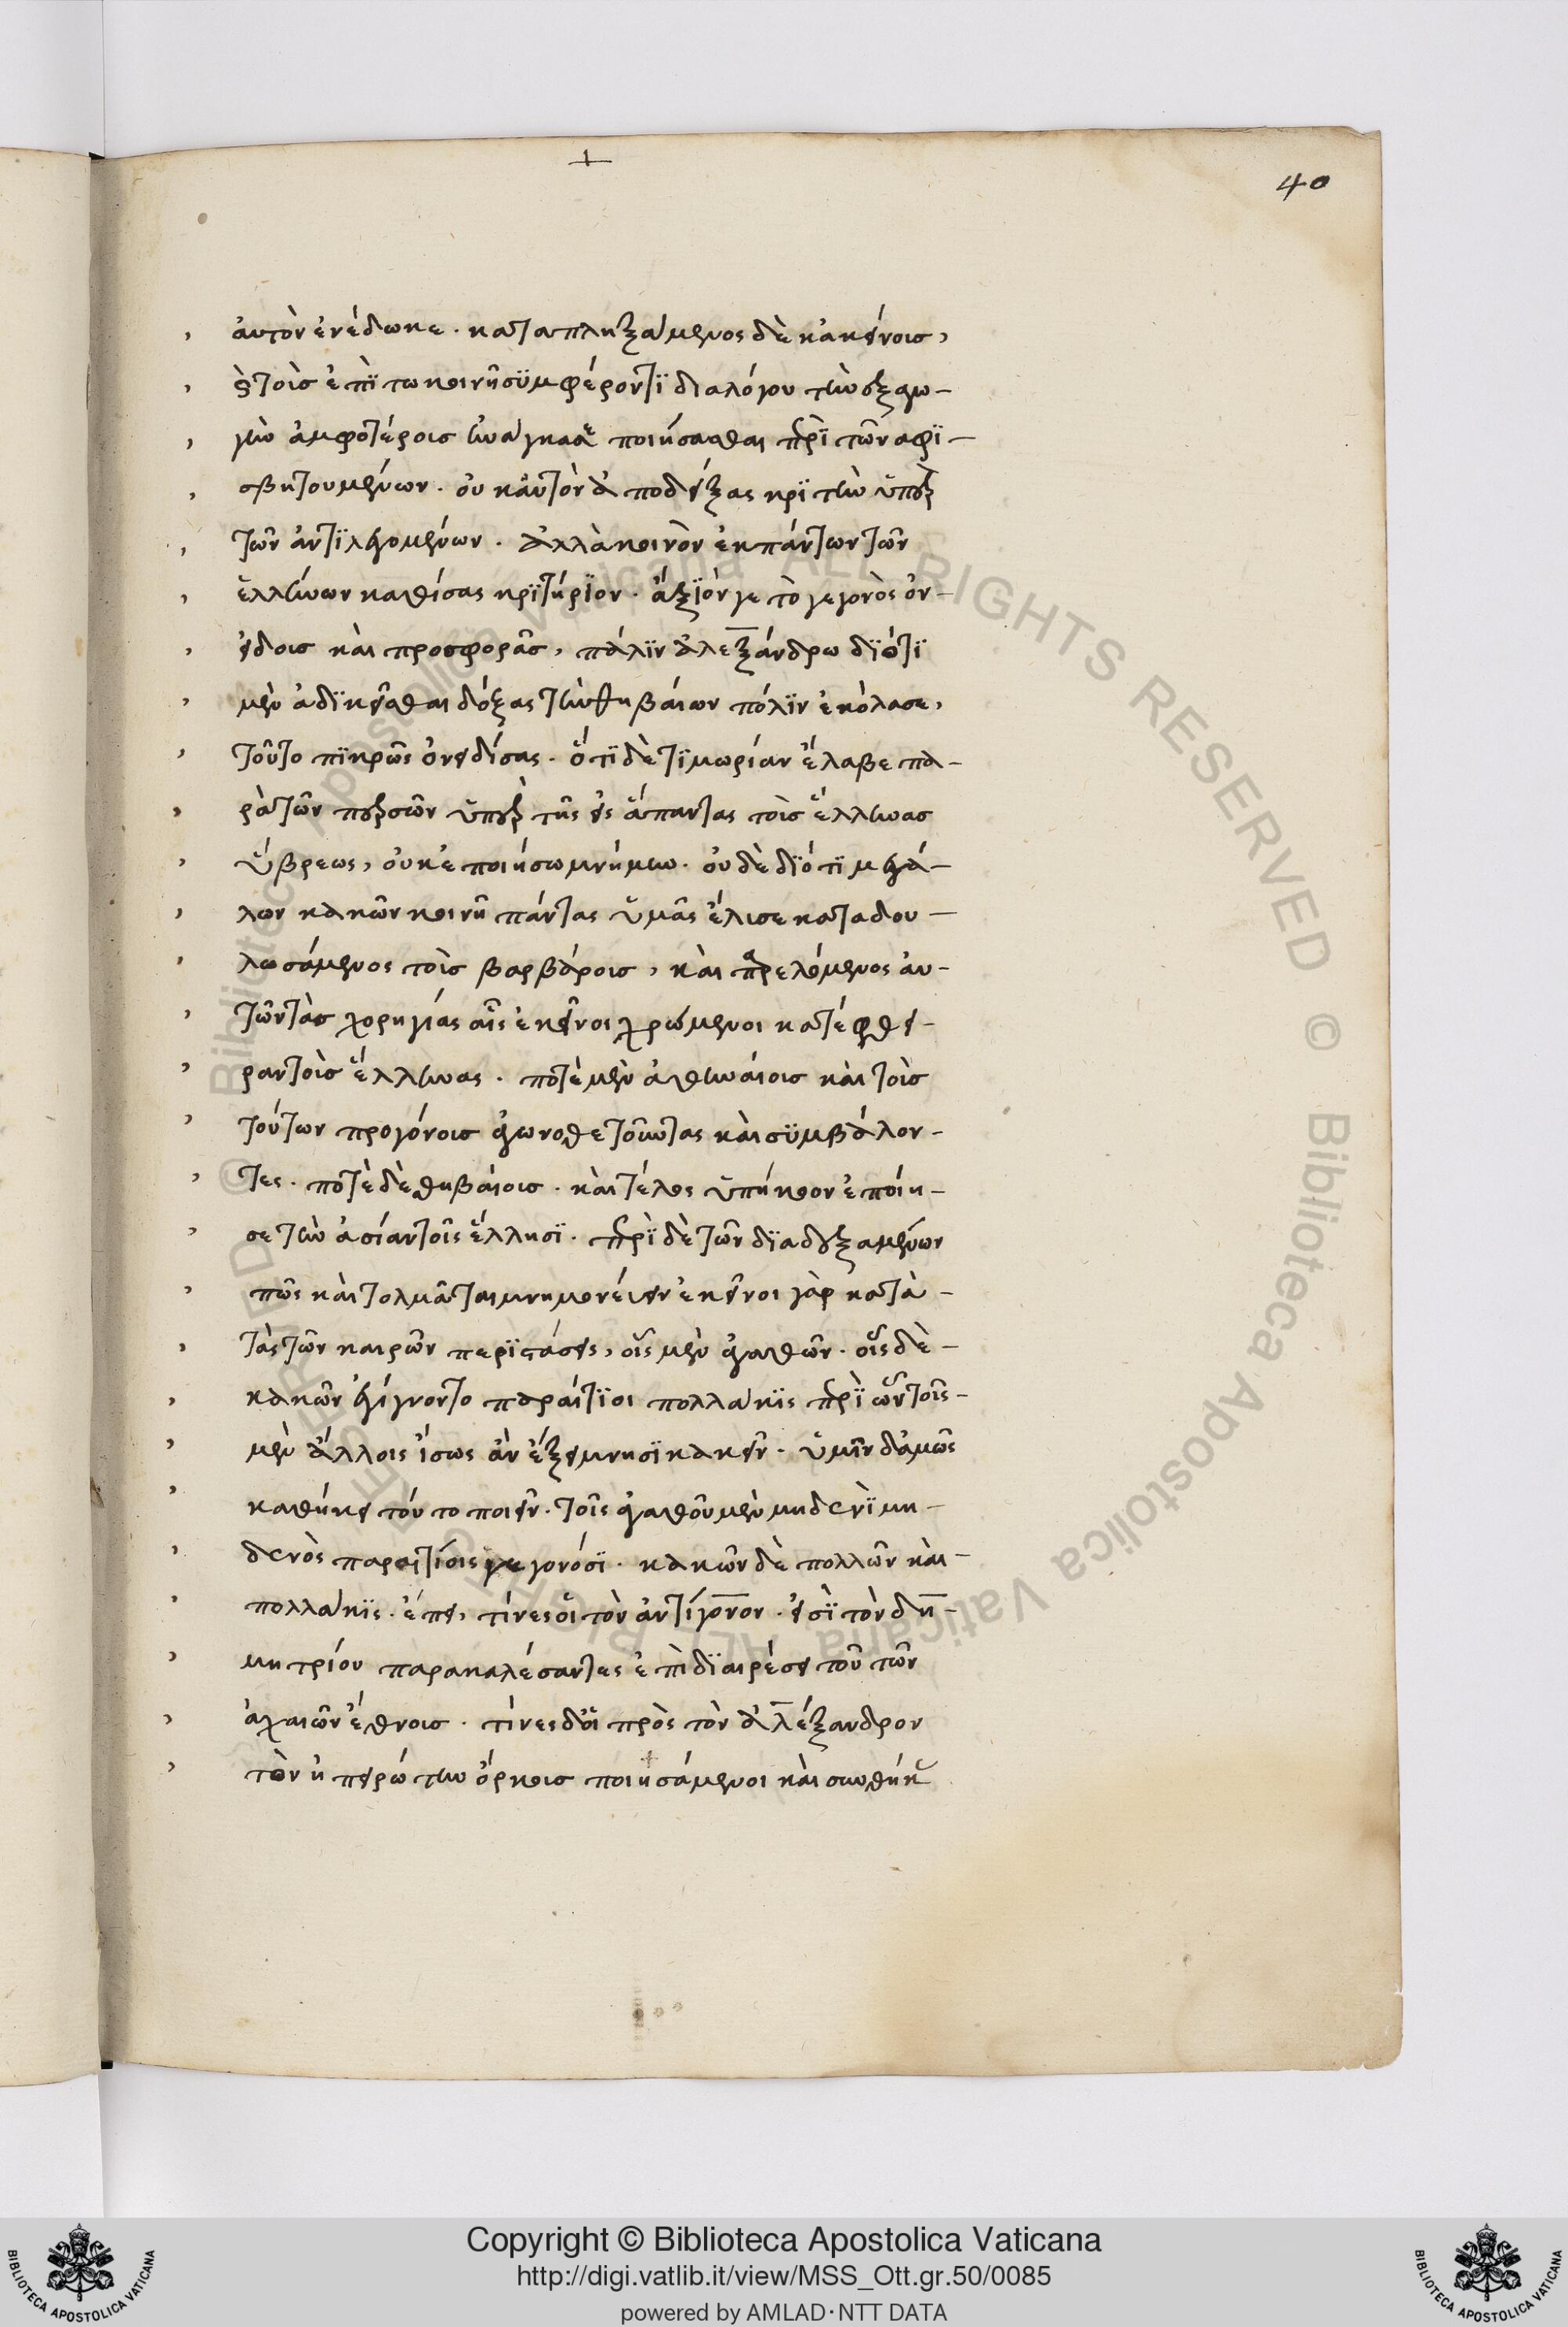 40
ἀυτὸν ἐνέδωκε. καταπληξάμενος δὲ κἀκείνοις,
ὃ τοὶς ἐπῒ τω κοινῆ συμφέροντϊ διαλόγου τὴν ἐξαγω-
γὴν ἀμφοτέροις ἠνάγκασε ποιήσασθαι περὶ τῶν αφϊ-
σβητουμένων. ὀυκ ἀυτὸν ἀποδείξας κριτὴν ὑπὲρ
τῶν ἀντϊλεγομένων. ἀλλὰ κοινὸν ἐκ πάντων τῶν
ἑλλήνων καθίσας κρϊτήρϊον. ἄξϊόν γε τὸ γεγονὸς ὀν-
είδοις κὰι προσφορᾶς, πάλϊν ἀλεξάνδρω δϊότϊ
μὲν ἀδϊκεῖσθαι δόξας τὴν θηβάιων πόλϊν ἐκόλασε,
τοῦτο πϊκρῶς ὀνειδίσας. ὅτϊ δὲ τϊμωρίαν ἔλαβε πα-
ρὰ τῶν περσῶν ὑπὲρ τῆς εἰς ἅπαντας τοὶς ἕλληνας
ὕβρεως, ὀυκ ἐποιήσω μνήμην. ὀυδὲ δϊότϊ μεγά-
λων κακῶν κοινῆ πάντας ὑμᾶς ἔλισε καταδου-
λωσάμενος τοὶς βαρβάροις, κὰι παρελόμενος ἀυ-
τῶν τὰς χορηγίας αἷς ἐκεῖνοι χρώμενοι κατέφθει-
ραν τοὶς ἕλληνας. ποτὲ μὲν ἀθηνάιοις κὰι τοὶς
τούτων προγόνοις ἀγωνοθετοῦντας κὰι συμβάλον-
τες. ποτὲ δὲ θηβάιοις. κὰι τέλος ὑπήκοον ἐποίη-
σε τὴν ἀσίαν τοῖς ἕλλησϊ. περὶ δὲ τῶν δϊαδεξαμένων
πῶς κὰι τολμᾶται μνημονέιειν ἐκεῖνοι γὰρ κατὰ-
τὰς τῶν καιρῶν περϊστάσεις, οἷς μὲν ἀγαθῶν. οἷς δὲ-
κακῶν ἐγίγνοντο παράιτϊοι πολλάκϊς περὶ ὧν τοῖς-
μὲν ἄλλοις ἴσως ἂν ἐξειμνησϊκακεῖν. ὑμῖν δἀμῶς
καθήκει τόυτο ποιεῖν. τοῖς ἀγαθοῦ μὲν μηδενὶ μη-
δενὸς παραιτίοις γεγονόσϊ. κακῶν δὲ πολλῶν κὰι-
πολλάκϊς. ἐπεί, τίνες ὁἱ τὸν ἀντίγονον. εἰσὶ τὸν δη-
μητρίου παρακαλέσαντες ἐπὶ δϊαιρέσει τοῦ τῶν
ἀχαιῶν ἔθνοις. τίνες δὁἱ πρὸς τὸν ἀλέξανδρον
τὸν ἠπειρώτην ὅρκοις ποιησάμενοι κὰι συνθήκ
Copyright © Biblioteca Apostolica Vaticana
http://digi.vatlib.it/view/MSS_Ott.gr.50/0085
powered by AMLAD·NTT DATA
BIBLIOTECA APOSTOLICA VATICANA
BIBLIOTECA APOSTOLICA VATICANA
© Biblioteca Apostolica Vaticana ALL RIGHTS RESERVED